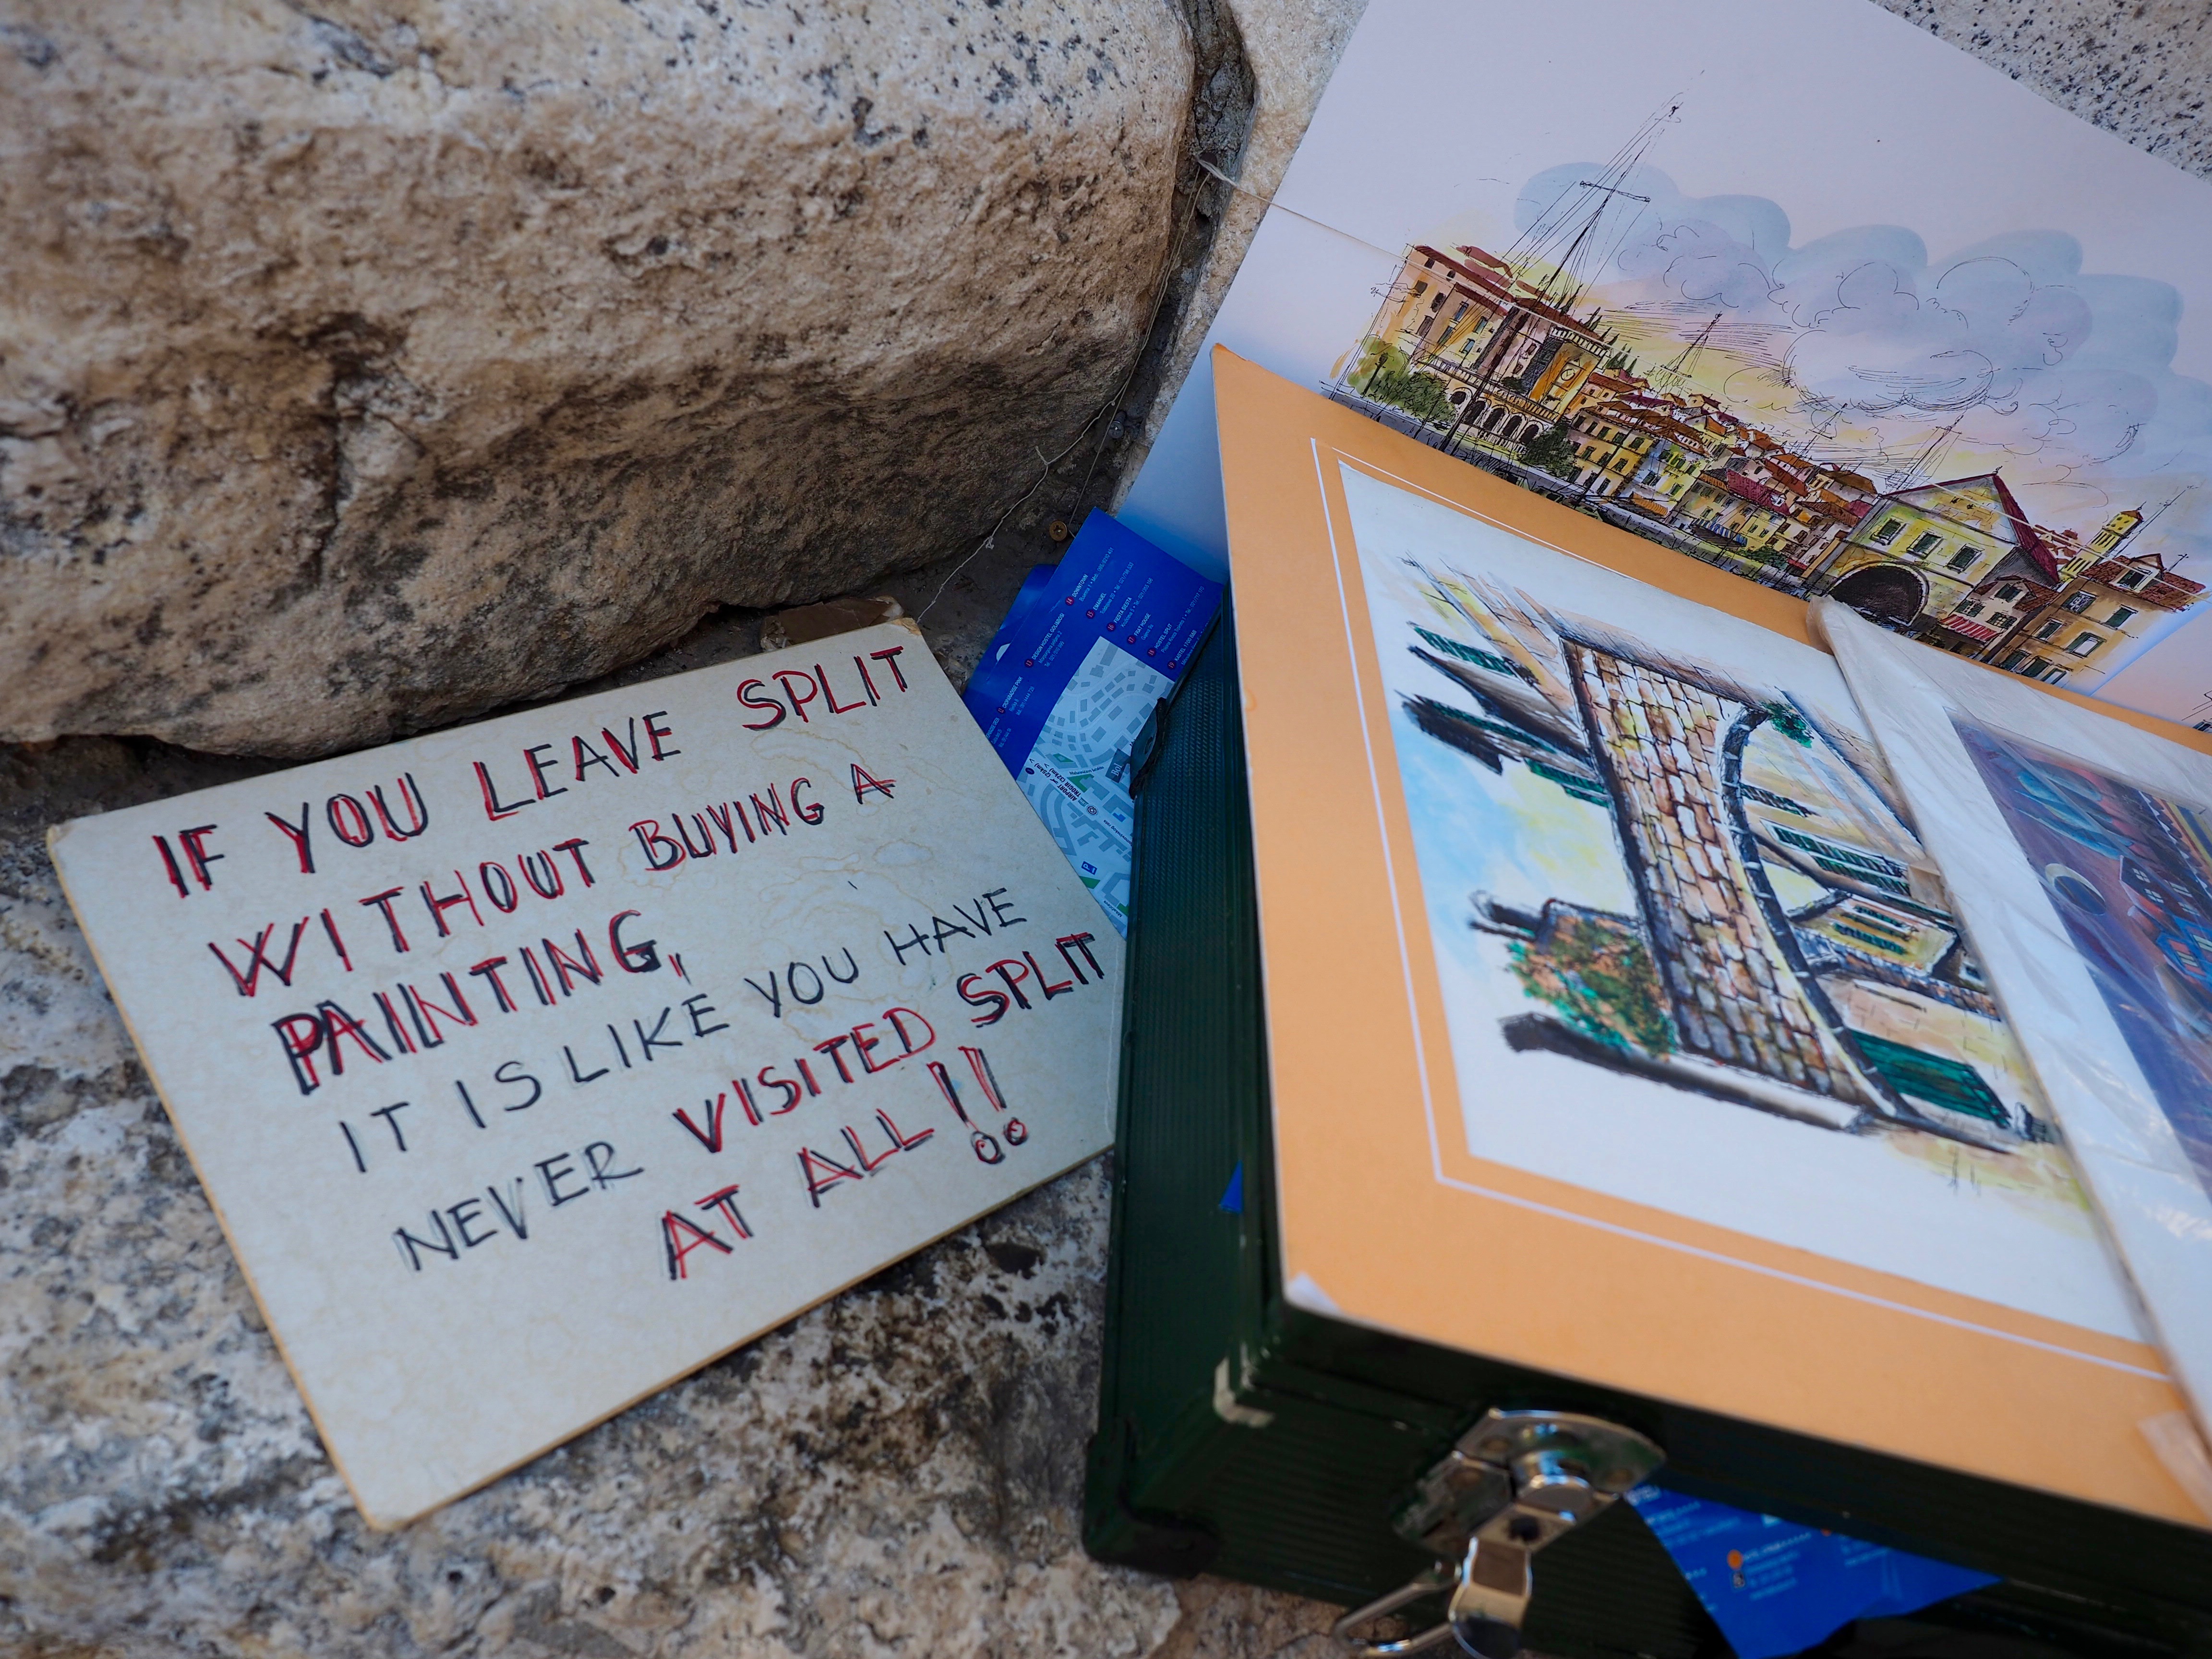 IF YOU LEAVE SPLIT
WITHOUT BUYING A
PAINTING,
IT IS LIKE YOU HAVE
NEVER VISITED SPLIT
AT ALL!!